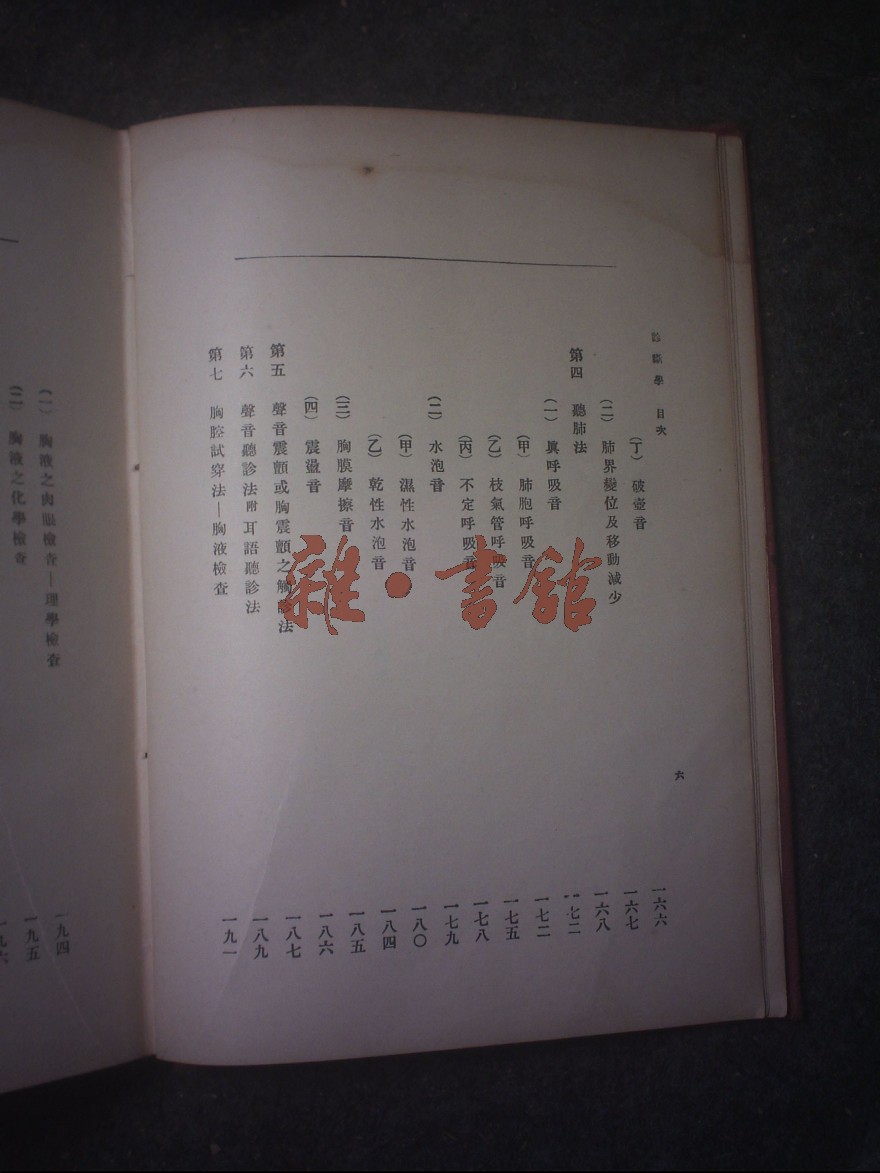 診斷學 目次 六
(丁) 破壺音 一六六
(二) 肺界變位及移動減少 一六七
第四 聽肺法 一六八
(一) 眞呼吸音 一七二
(甲) 肺胞呼吸音 一七二
(乙) 枝氣管呼吸音 一七五
(丙) 不定呼吸音 一七八
(二) 水泡音 一七九
(甲) 濕性水泡音 一八〇
(乙) 乾性水泡音 一八四
(三) 胸膜摩擦音 一八五
(四) 震盪音 一八六
第五 聲音震顫或胸震顫之觸診法 一八七
第六 聲音聽診法附耳語聽診法 一八九
第七 胸腔試穿法—胸液檢查 一九一
(一) 胸液之肉眼檢查—理學檢查 一九四
(二) 胸液之化學檢查 一九五
一九六
雜·書館